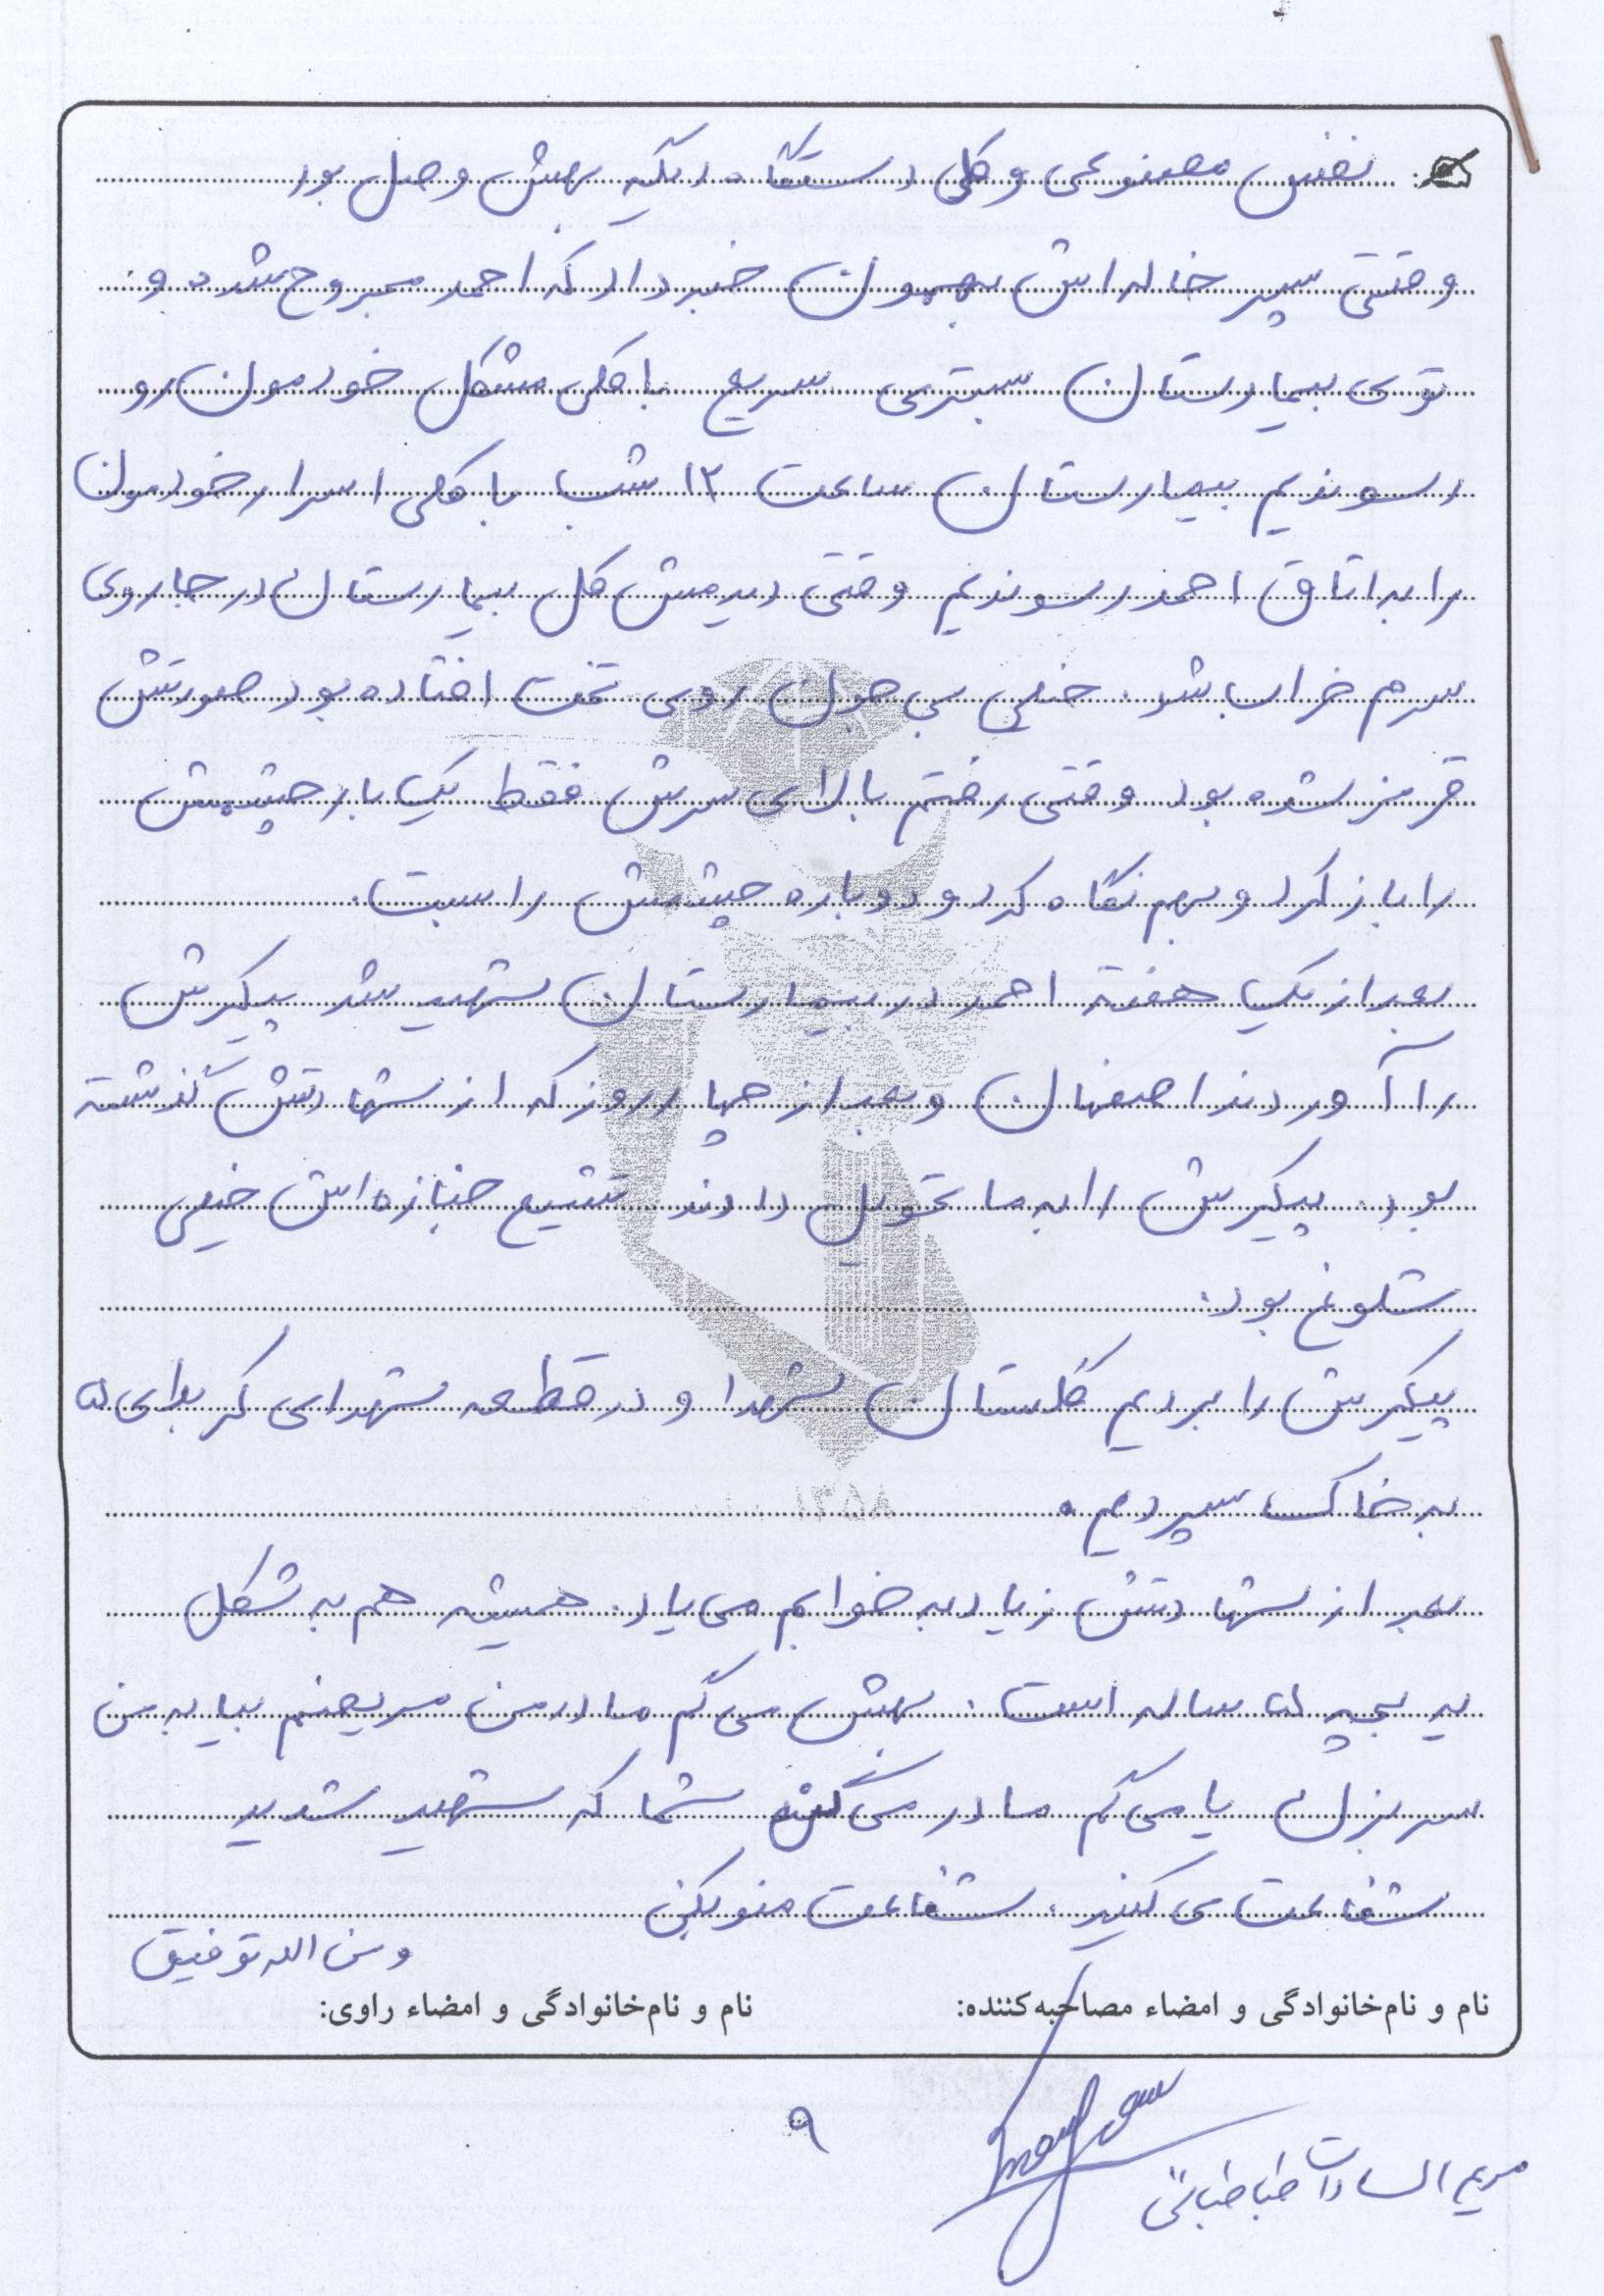 نفس مصنوعی و کلی دستگاه دیگه بهش وصل بود
وقتی پسر خاله اش بهمون خبر داد که احمد مجروح شده و
توی بیمارستان بستری سریع با کلی مشکل خودمون رو
رسوندیم بیمارستان ساعت ۱۲ شب با کلی اسرار خودمون
را به اتاق احمد رسوندیم وقتی دیدمش کل بیمارستان در جا روی
سرم خراب شد. خیلی بی جون روی تخت افتاده بود صورتش
قرمز شده بود وقتی رفتم بالای سرش فقط یک بار چشمش
را باز کرد و بهم نگاه کرد و دوباره چشمش را بست.
بعد از یک هفته احمد در بیمارستان شهید شد پیکرش
را آوردند اصفهان و بعد از چهار روز که از شهادتش گذشته
بود. پیکرش را به ما تحویل دادند تشییع جنازه اش خیلی
شلوغ بود.
پیکرش را بردیم گلستان شهدا و در قطعه شهدای کربلای ۵
به خاک سپردیم.
۱۳۵۸
بعد از شهادتش زیاد به خوابم می یاد. همیشه هم به شکل
یه بچه ۵ ساله است. بهش می گم مادر من مریضم بیا به من
سر بزن یا می گم مادر می گن شما که شهید شدید
شفاعت می کنید. شفاعت منو بکن
و من الله توفیق
نام و نام‌خانوادگی و امضاء مصاحبه‌کننده: نام و نام‌خانوادگی و امضاء راوی:
۹
مریم السادات طباطبائی